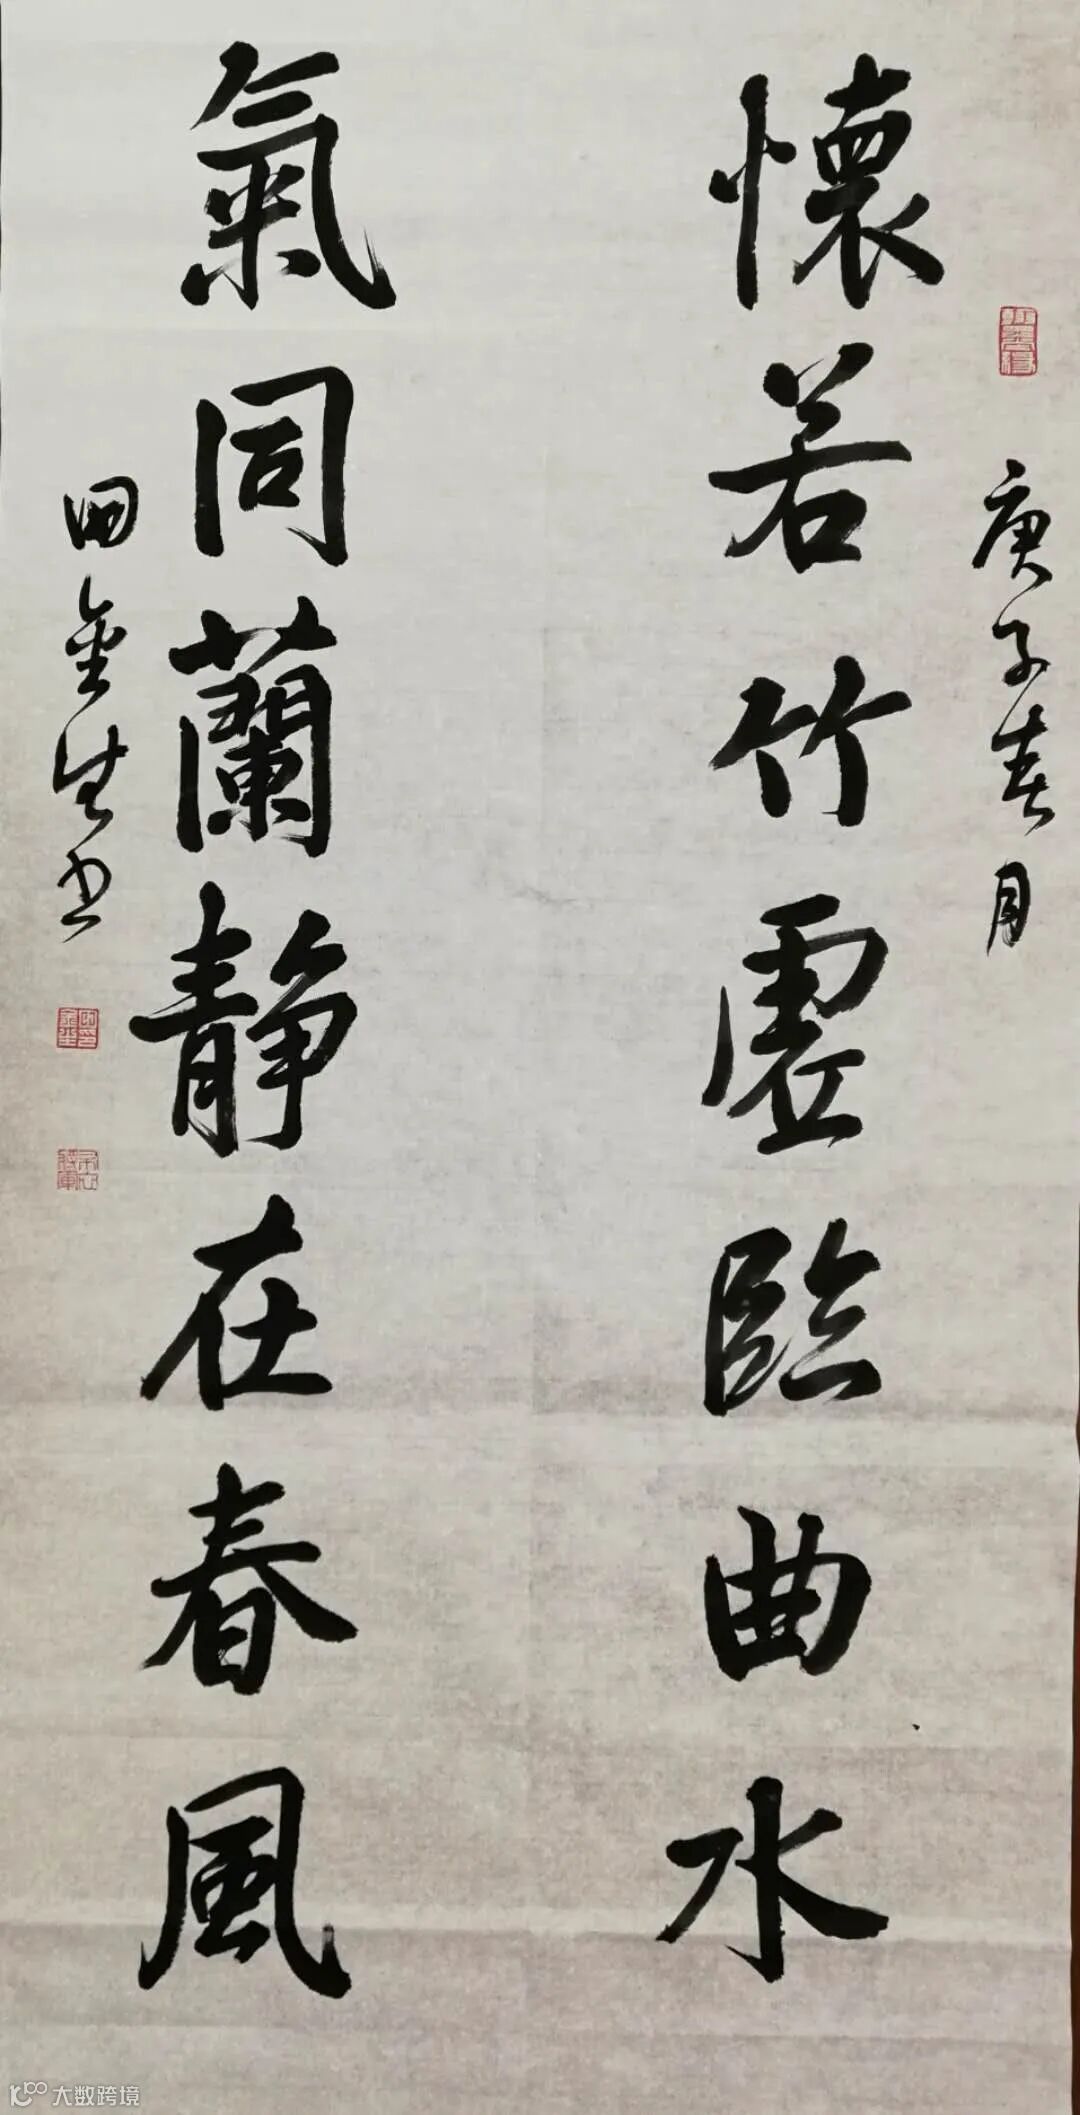 庚子春月
懷若竹虛臨曲水
氣同蘭靜在春風
金生书
大数跨境